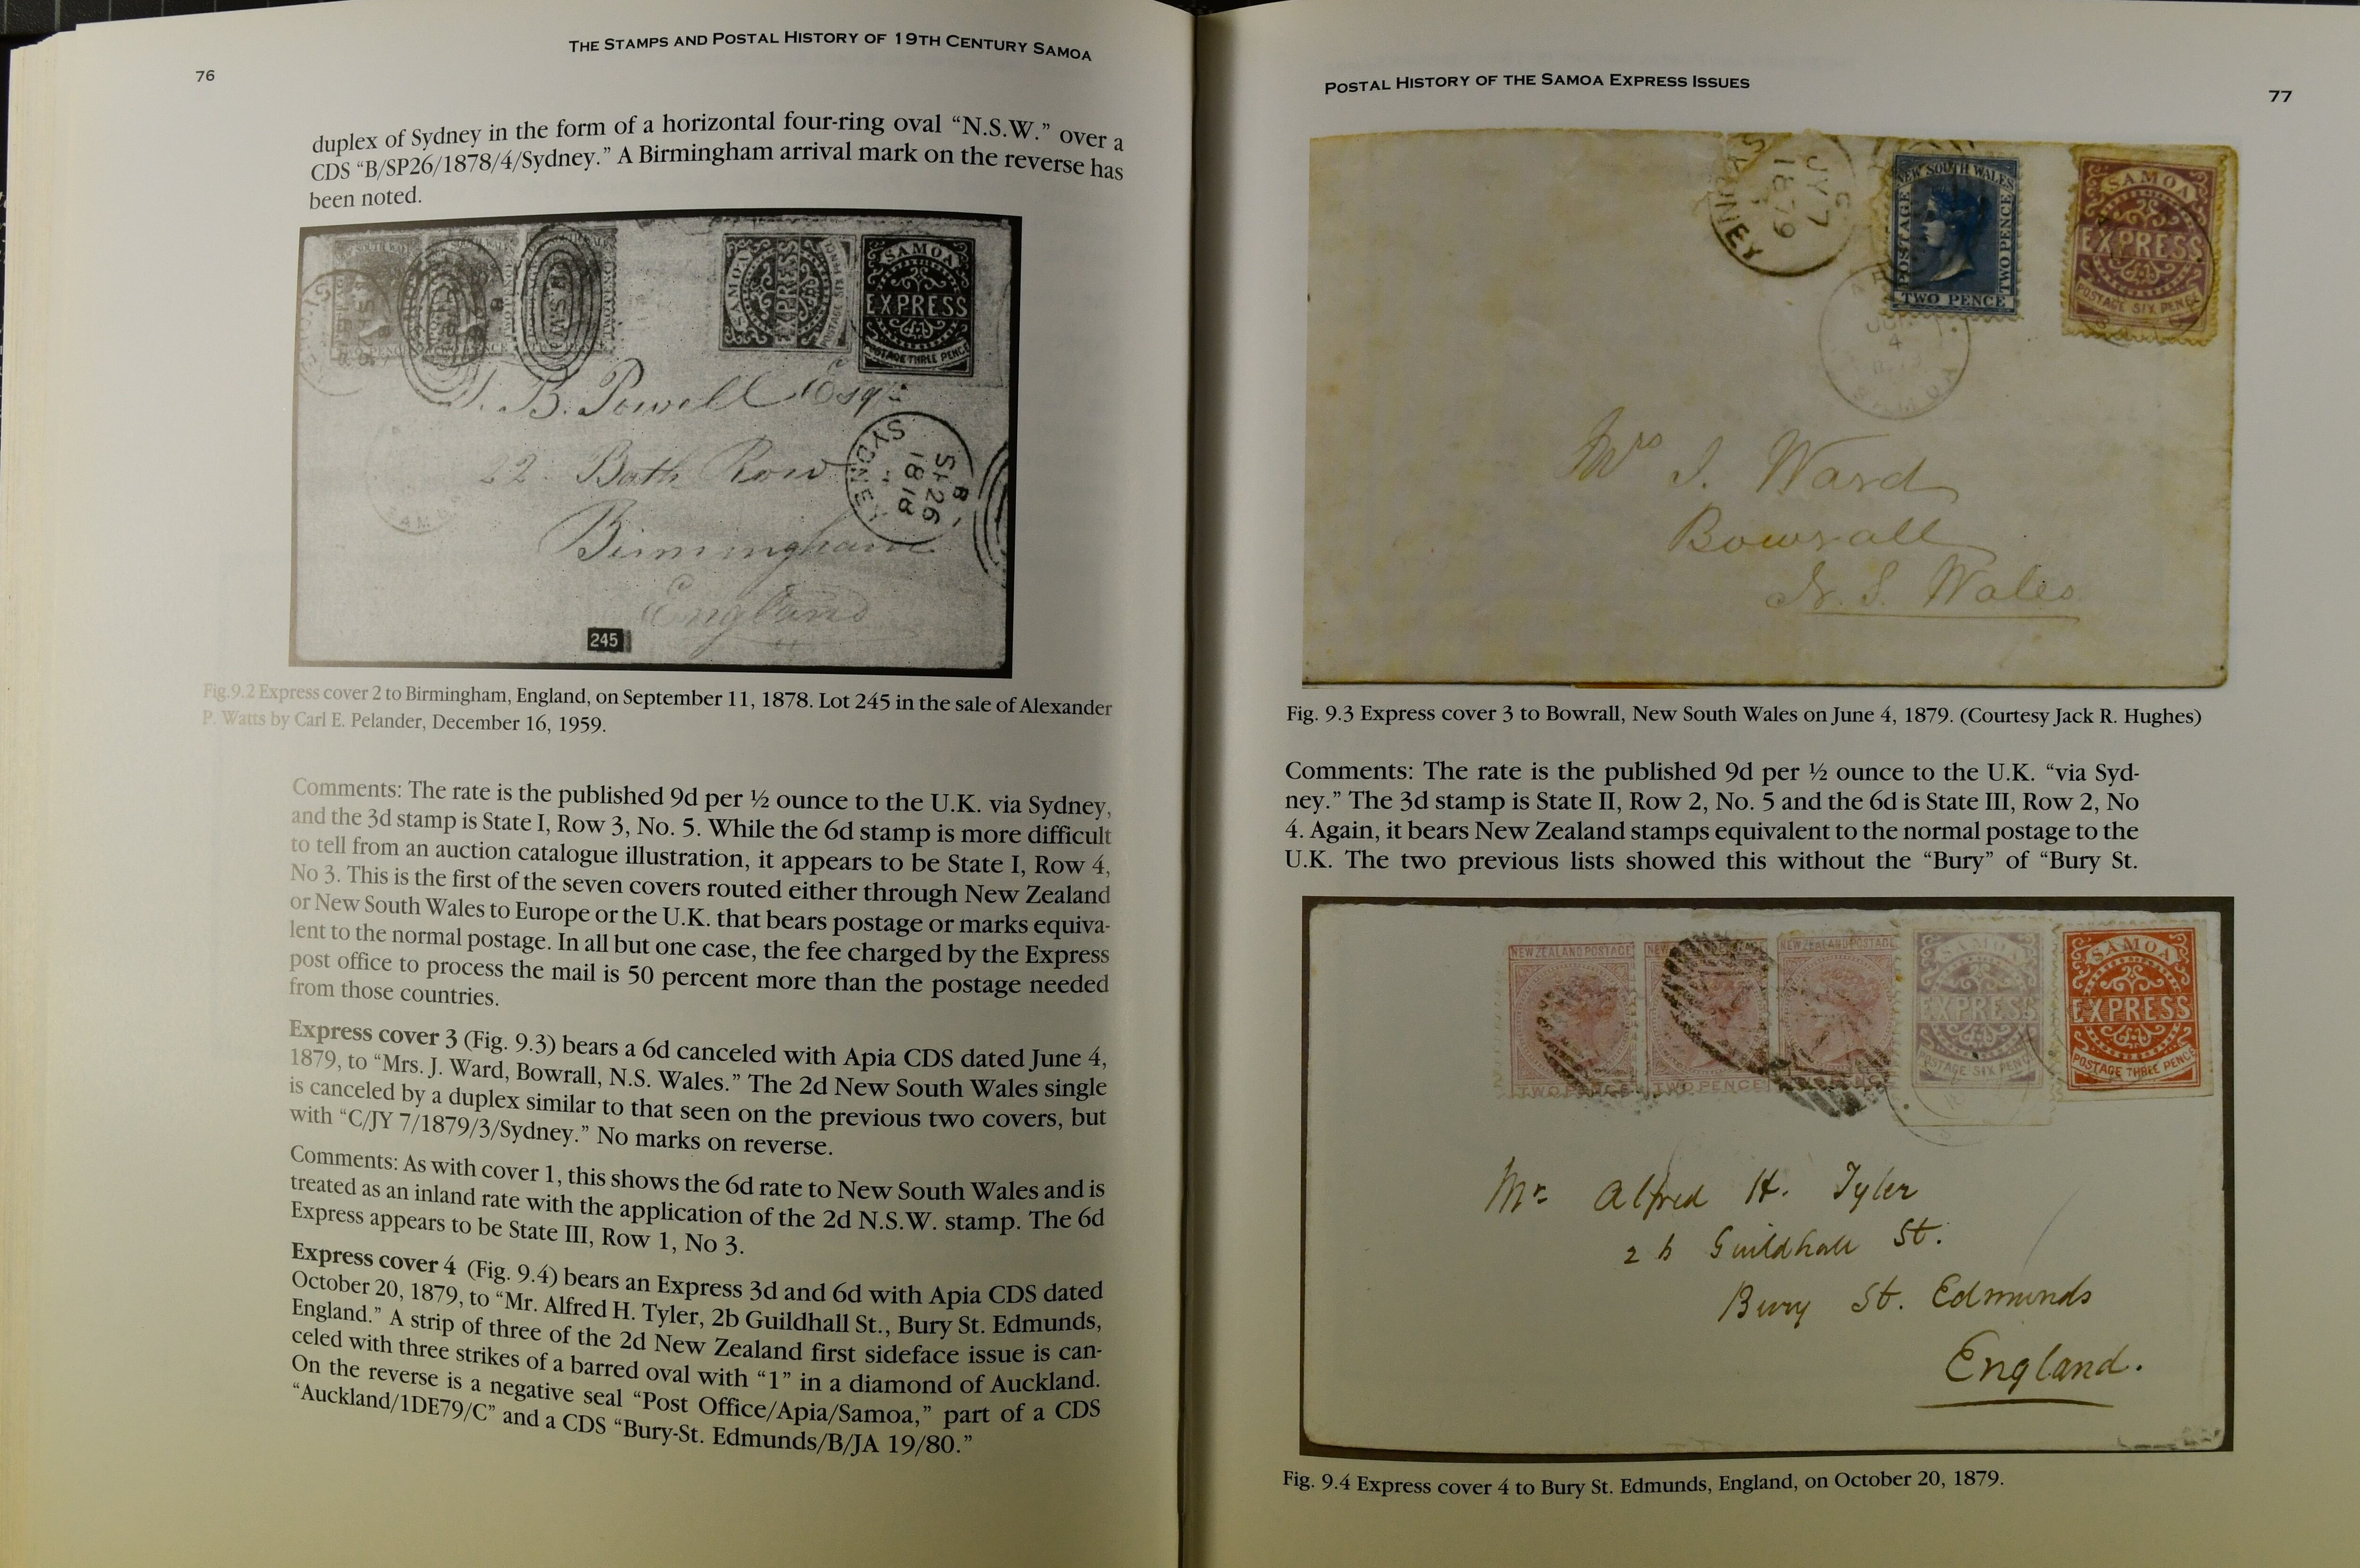 THE STAMPS AND POSTAL HISTORY OF 19TH CENTURY SAMOA
76
duplex of Sydney in the form of a horizontal four-ring oval “N.S.W.” over a
CDS “B/SP26/1878/4/Sydney.” A Birmingham arrival mark on the reverse has
been noted.
SAMOA
EXPRESS
POSTAGE SIX PENCE
SAMOA
EXPRESS
POSTAGE THREE PENCE
N.S.W.
B. Powell Esqr
22 Bath Row
Birmingham
England
SYDNEY
B
SP 26
1878
245
Fig.9.2 Express cover 2 to Birmingham, England, on September 11, 1878. Lot 245 in the sale of Alexander
P. Watts by Carl E. Pelander, December 16, 1959.
Comments: The rate is the published 9d per ½ ounce to the U.K. via Sydney,
and the 3d stamp is State I, Row 3, No. 5. While the 6d stamp is more difficult
to tell from an auction catalogue illustration, it appears to be State I, Row 4,
No 3. This is the first of the seven covers routed either through New Zealand
or New South Wales to Europe or the U.K. that bears postage or marks equiva-
lent to the normal postage. In all but one case, the fee charged by the Express
post office to process the mail is 50 percent more than the postage needed
from those countries.
Express cover 3 (Fig. 9.3) bears a 6d canceled with Apia CDS dated June 4,
1879, to “Mrs. J. Ward, Bowrall, N.S. Wales.” The 2d New South Wales single
is canceled by a duplex similar to that seen on the previous two covers, but
with “C/JY 7/1879/3/Sydney.” No marks on reverse.
Comments: As with cover 1, this shows the 6d rate to New South Wales and is
treated as an inland rate with the application of the 2d N.S.W. stamp. The 6d
Express appears to be State III, Row 1, No 3.
Express cover 4 (Fig. 9.4) bears an Express 3d and 6d with Apia CDS dated
October 20, 1879, to “Mr. Alfred H. Tyler, 2b Guildhall St., Bury St. Edmunds,
England.” A strip of three of the 2d New Zealand first sideface issue is can-
celed with three strikes of a barred oval with “1” in a diamond of Auckland.
On the reverse is a negative seal “Post Office/Apia/Samoa,” part of a CDS
“Auckland/1DE79/C” and a CDS “Bury-St. Edmunds/B/JA 19/80.”
POSTAL HISTORY OF THE SAMOA EXPRESS ISSUES
77
SYDNEY
C
JY 7
1879
NEW SOUTH WALES
POSTAGE
TWO PENCE
TWO PENCE
SAMOA
EXPRESS
POSTAGE SIX PENCE
Mrs J. Ward
Bowrall
N. S. Wales
Fig. 9.3 Express cover 3 to Bowrall, New South Wales on June 4, 1879. (Courtesy Jack R. Hughes)
Comments: The rate is the published 9d per ½ ounce to the U.K. “via Syd-
ney.” The 3d stamp is State II, Row 2, No. 5 and the 6d is State III, Row 2, No
4. Again, it bears New Zealand stamps equivalent to the normal postage to the
U.K. The two previous lists showed this without the “Bury” of “Bury St.
NEW ZEALAND POSTAGE
TWO PENCE
TWO PENCE
NEW ZEALAND POSTAGE
SAMOA
EXPRESS
POSTAGE SIX PENCE
SAMOA
EXPRESS
POSTAGE THREE PENCE
Mr Alfred H. Tyler
2 b Guildhall St.
Bury St. Edmunds
England.
Fig. 9.4 Express cover 4 to Bury St. Edmunds, England, on October 20, 1879.